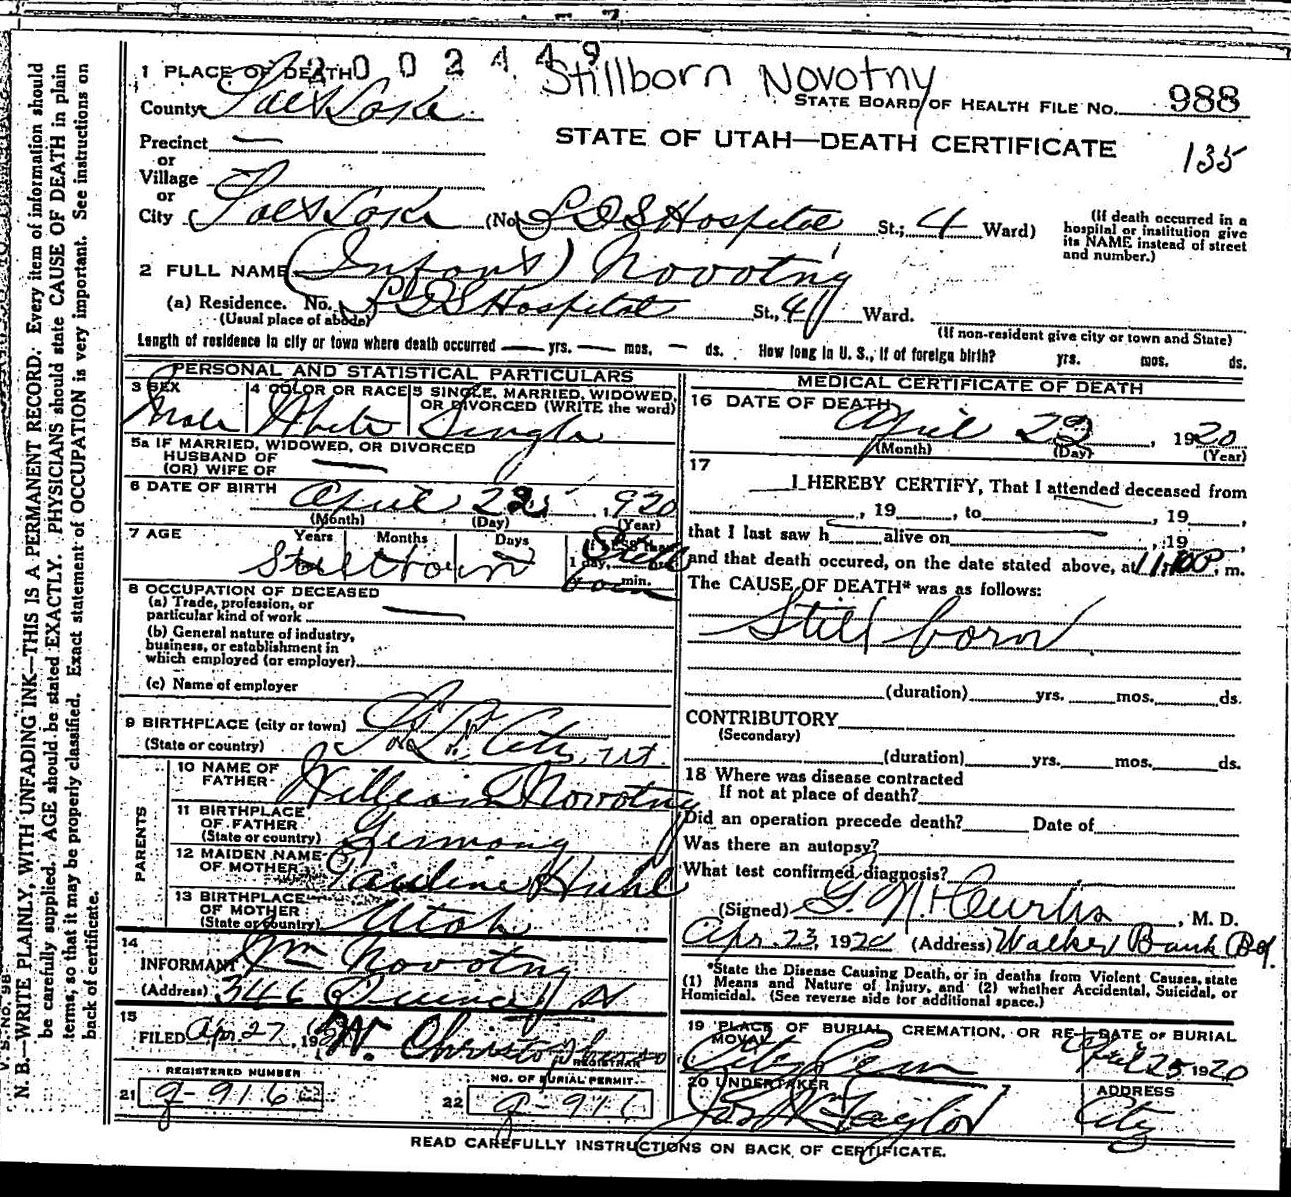 2002449
Stillborn Novotny
1 PLACE OF DEATH
STATE BOARD OF HEALTH FILE NO. 988
County Salt Lake
STATE OF UTAH—DEATH CERTIFICATE
135
Precinct —
or
Village —
or
City Salt Lake (No. L D S Hospital St.; 4 Ward)
(If death occurred in a hospital or institution give its NAME instead of street and number.)
2 FULL NAME (Infant) Novotny
(a) Residence. No. L D S Hospital St., 4 Ward.
(Usual place of abode)
(If non-resident give city or town and State)
Length of residence in city or town where death occurred — yrs. — mos. — ds. How long in U. S., if of foreign birth? yrs. mos. ds.
PERSONAL AND STATISTICAL PARTICULARS
3 SEX Male
4 COLOR OR RACE White
5 SINGLE, MARRIED, WIDOWED, OR DIVORCED (WRITE the word) Single
5a IF MARRIED, WIDOWED, OR DIVORCED
HUSBAND OF
(OR) WIFE OF —
6 DATE OF BIRTH April 22, 1920
(Month) (Day) (Year)
7 AGE Years Months Days
Stillborn
1 day, min.
Still born
8 OCCUPATION OF DECEASED
(a) Trade, profession, or
particular kind of work —
(b) General nature of industry,
business, or establishment in
which employed (or employer)
(c) Name of employer
9 BIRTHPLACE (city or town) S. L. City, Ut
(State or country)
PARENTS
10 NAME OF FATHER William Novotny
11 BIRTHPLACE OF FATHER Germany
(State or country)
12 MAIDEN NAME OF MOTHER Pauline Huhl
13 BIRTHPLACE OF MOTHER Utah
(State or country)
14
INFORMANT Wm Novotny
(Address) 346
15
FILED Apr 27, 192 REGISTRAR
REGISTERED NUMBER
21 g-916
NO. OF BURIAL PERMIT
22 g-916
MEDICAL CERTIFICATE OF DEATH
16 DATE OF DEATH
April 22, 1920
(Month) (Day) (Year)
17
I HEREBY CERTIFY, That I attended deceased from
, 19 , to , 19 ,
that I last saw h alive on , 19 ,
and that death occured, on the date stated above, at 11:00 P. m.
The CAUSE OF DEATH* was as follows:
Still born
(duration) yrs. mos. ds.
CONTRIBUTORY
(Secondary)
(duration) yrs. mos. ds.
18 Where was disease contracted
If not at place of death?
Did an operation precede death? Date of
Was there an autopsy?
What test confirmed diagnosis?
(Signed) G. N. Curtis, M. D.
Apr 23, 1920 (Address) Walker Bank Bd.
*State the Disease Causing Death, or in deaths from Violent Causes, state
(1) Means and Nature of Injury, and (2) whether Accidental, Suicidal, or
Homicidal. (See reverse side for additional space.)
19 PLACE OF BURIAL, CREMATION, OR REMOVAL City Cem
DATE OF BURIAL April 25 1920
20 UNDERTAKER Taylor
ADDRESS City
READ CAREFULLY INSTRUCTIONS ON BACK OF CERTIFICATE.
V. S. No. 98
N. B.—WRITE PLAINLY, WITH UNFADING INK—THIS IS A PERMANENT RECORD. Every item of information should
be carefully supplied. AGE should be stated EXACTLY. PHYSICIANS should state CAUSE OF DEATH in plain
terms, so that it may be properly classified. Exact statement of OCCUPATION is very important. See instructions on
back of certificate.